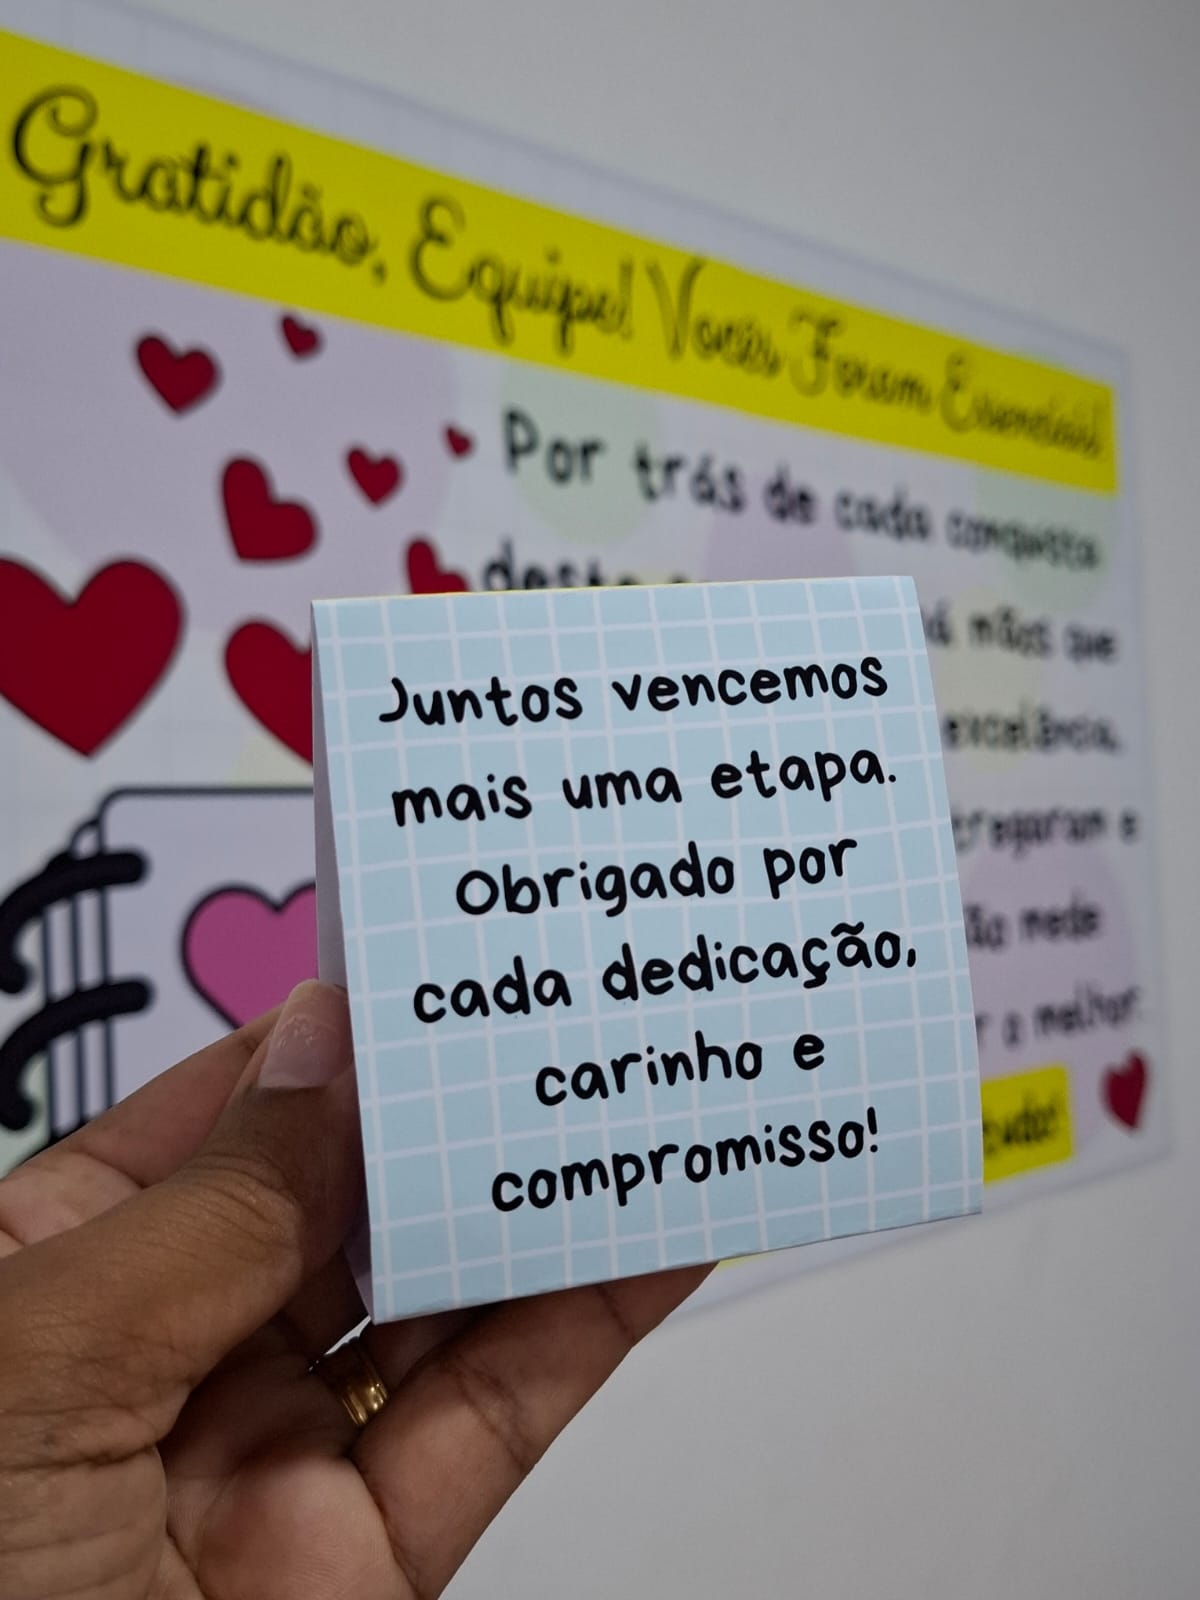 Gratidão, Equipe! Vocês Foram Essenciais!
Por trás de cada conquista
deste
há mãos que
excelência,
e
não mede
r o melhor.
tudo!
Juntos vencemos
mais uma etapa.
Obrigado por
cada dedicação,
carinho e
compromisso!